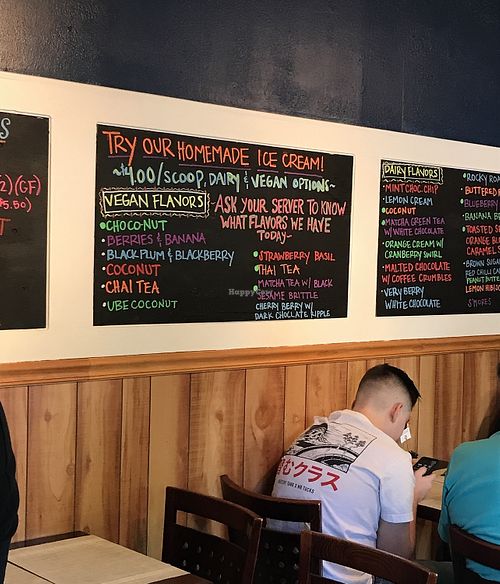 S
2)(GF)
$5.50)
TRY OUR HOMEMADE ICE CREAM!
~$4.00/SCOOP, DAIRY & VEGAN OPTIONS~
VEGAN FLAVORS
~ASK YOUR SERVER TO KNOW
WHAT FLAVORS WE HAVE
TODAY~
•CHOCO-NUT
•BERRIES & BANANA
•BLACK PLUM & BLACKBERRY
•COCONUT
•CHAI TEA
•UBE COCONUT
•STRAWBERRY BASIL
•THAI TEA
•MATCHA TEA W/ BLACK
SESAME BRITTLE
CHERRY BERRY W/
DARK CHOCLATE RIPPLE
DAIRY FLAVORS
•MINT CHOC. CHIP
•LEMON CREAM
•COCONUT
•MATCHA GREEN TEA
W/ WHITE CHOCOLATE
•ORANGE CREAM W/
CRANBERRY SWIRL
•MALTED CHOCOLATE
W/ COFFEE CRUMBLES
•VERY BERRY
WHITE CHOCOLATE
•ROCKY ROA
•BUTTERED
•BLUEBERRY
•BANANA
•TOASTED
•ORANGE BL
CARAMEL S
•BROWN SUGA
RED CHILLI CA
PEANUT BUTTE
LEMON HIBISC
S'MORES
HappyCow
むクラス